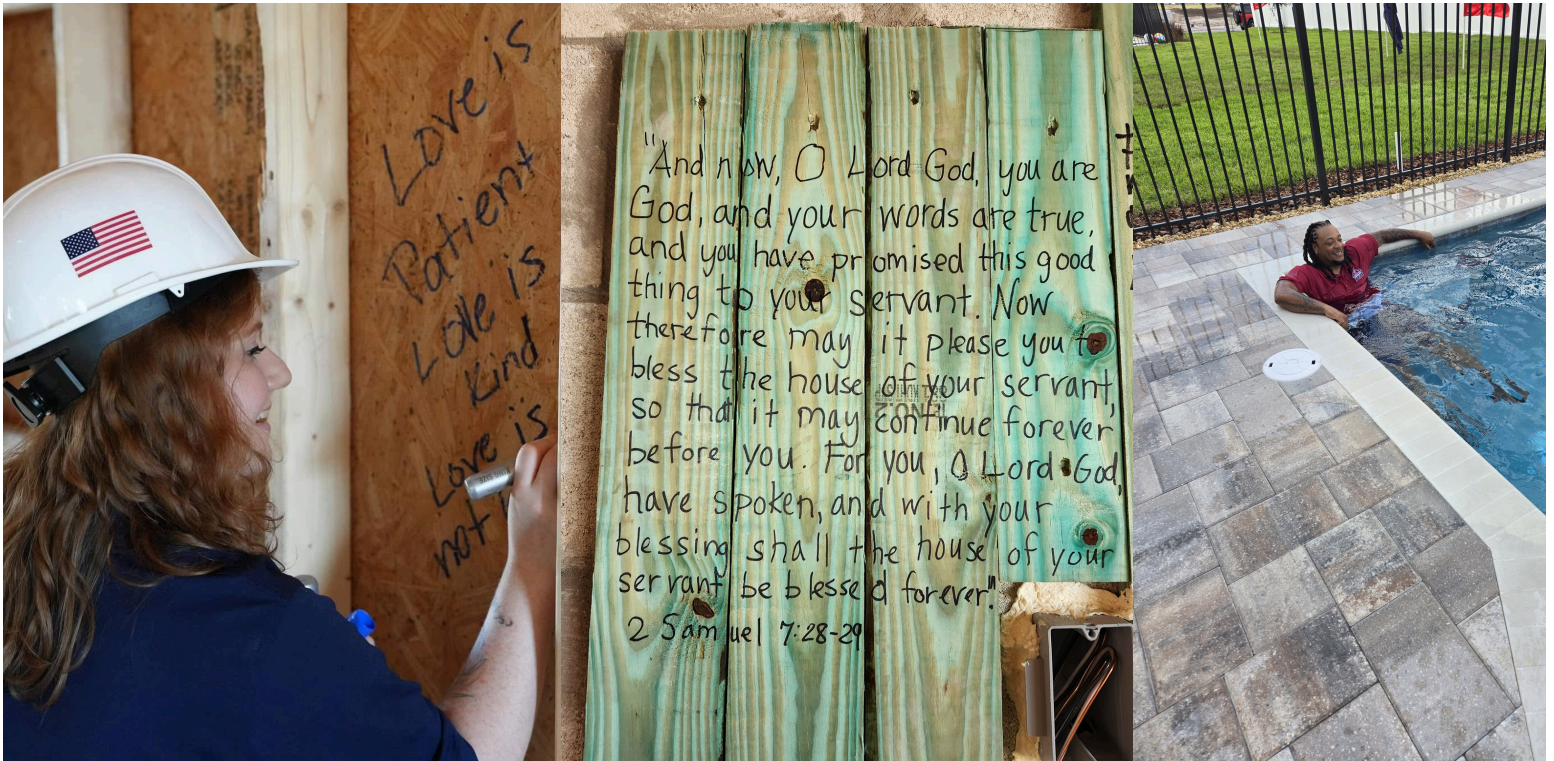 Love is
Patient
Love is
Kind
Love is
not
"And now, O Lord God, you are
God, and your words are true,
and you have promised this good
thing to your servant. Now
therefore may it please you to
bless the house of your servant,
so that it may continue forever
before you. For you, O Lord God,
have spoken, and with your
blessing shall the house of your
servant be blessed forever".
2 Samuel 7:28-29